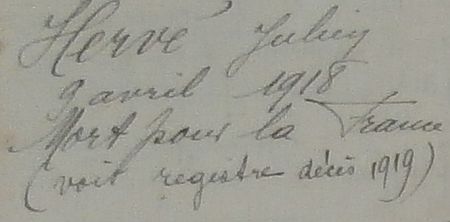 Hervé Julien
9 avril 1918
Mort pour la France
(voir registre décès 1919)